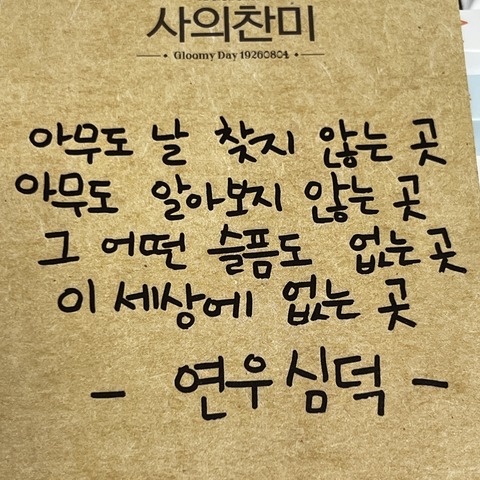 사의찬미
Gloomy Day 19260804
아무도 날 찾지 않는 곳
아무도 알아보지 않는 곳
그 어떤 슬픔도 없는 곳
이 세상에 없는 곳
- 연우심덕 -